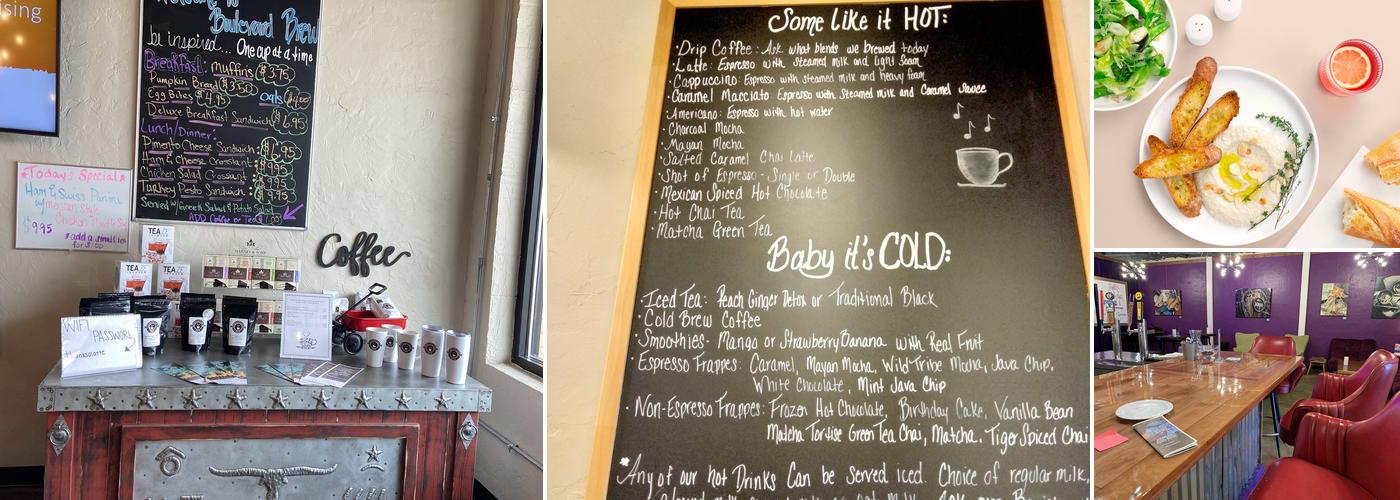 ising
Welcome to
Boulevard Brew
be inspired... One cup at a time
Breakfast: Muffins $3.75
Pumpkin Bread $3.50
Egg Bites $4.95 Oats $4.00
Deluxe Breakfast Sandwich $6.95
Lunch/Dinner:
Pimento Cheese Sandwich: $6.95
Ham & Cheese Croissant: $9.95
Chicken Salad Croissant: $9.95
Turkey Pesto Sandwich: $9.95
Served w/Greek Salad & Potato Salad
ADD Coffee or Tea $1.00
Today's Special
Ham & Swiss Panini
w/ Mexican Style
Chicken
$9.95
add a small tea
for $1.00
Coffee
TEAZE
TEAZE
TEAZE
HARNEY & SONS
WIFI
PASSWORD
Some like it HOT:
·Drip Coffee: Ask what blends we brewed today
·Latte: Espresso with steamed milk and light foam
·Cappuccino: Espresso with steamed milk and heavy foam
·Caramel Macciato: Espresso with steamed milk and Caramel Sauce
·Americano: Espresso with hot water
·Charcoal Mocha
·Mayan Mocha
·Salted Caramel Chai Latte
·Shot of Espresso - Single or Double
·Mexican Spiced Hot Chocolate
·Hot Chai Tea
·Matcha Green Tea
Baby it's COLD:
·Iced Tea: Peach Ginger Detox or Traditional Black
·Cold Brew Coffee
·Smoothies- Mango or Strawberry Banana with Real Fruit
·Espresso Frappes: Caramel, Mayan Mocha, Wild Tribe Mocha, Java Chip,
White Chocolate, Mint Java Chip
·Non-Espresso Frappes: Frozen Hot Chocolate, Birthday Cake, Vanilla Bean
Matcha Tortise Green Tea Chai, Matcha, Tiger Spiced Chai
*Any of our hot Drinks Can be served iced. Choice of regular milk,